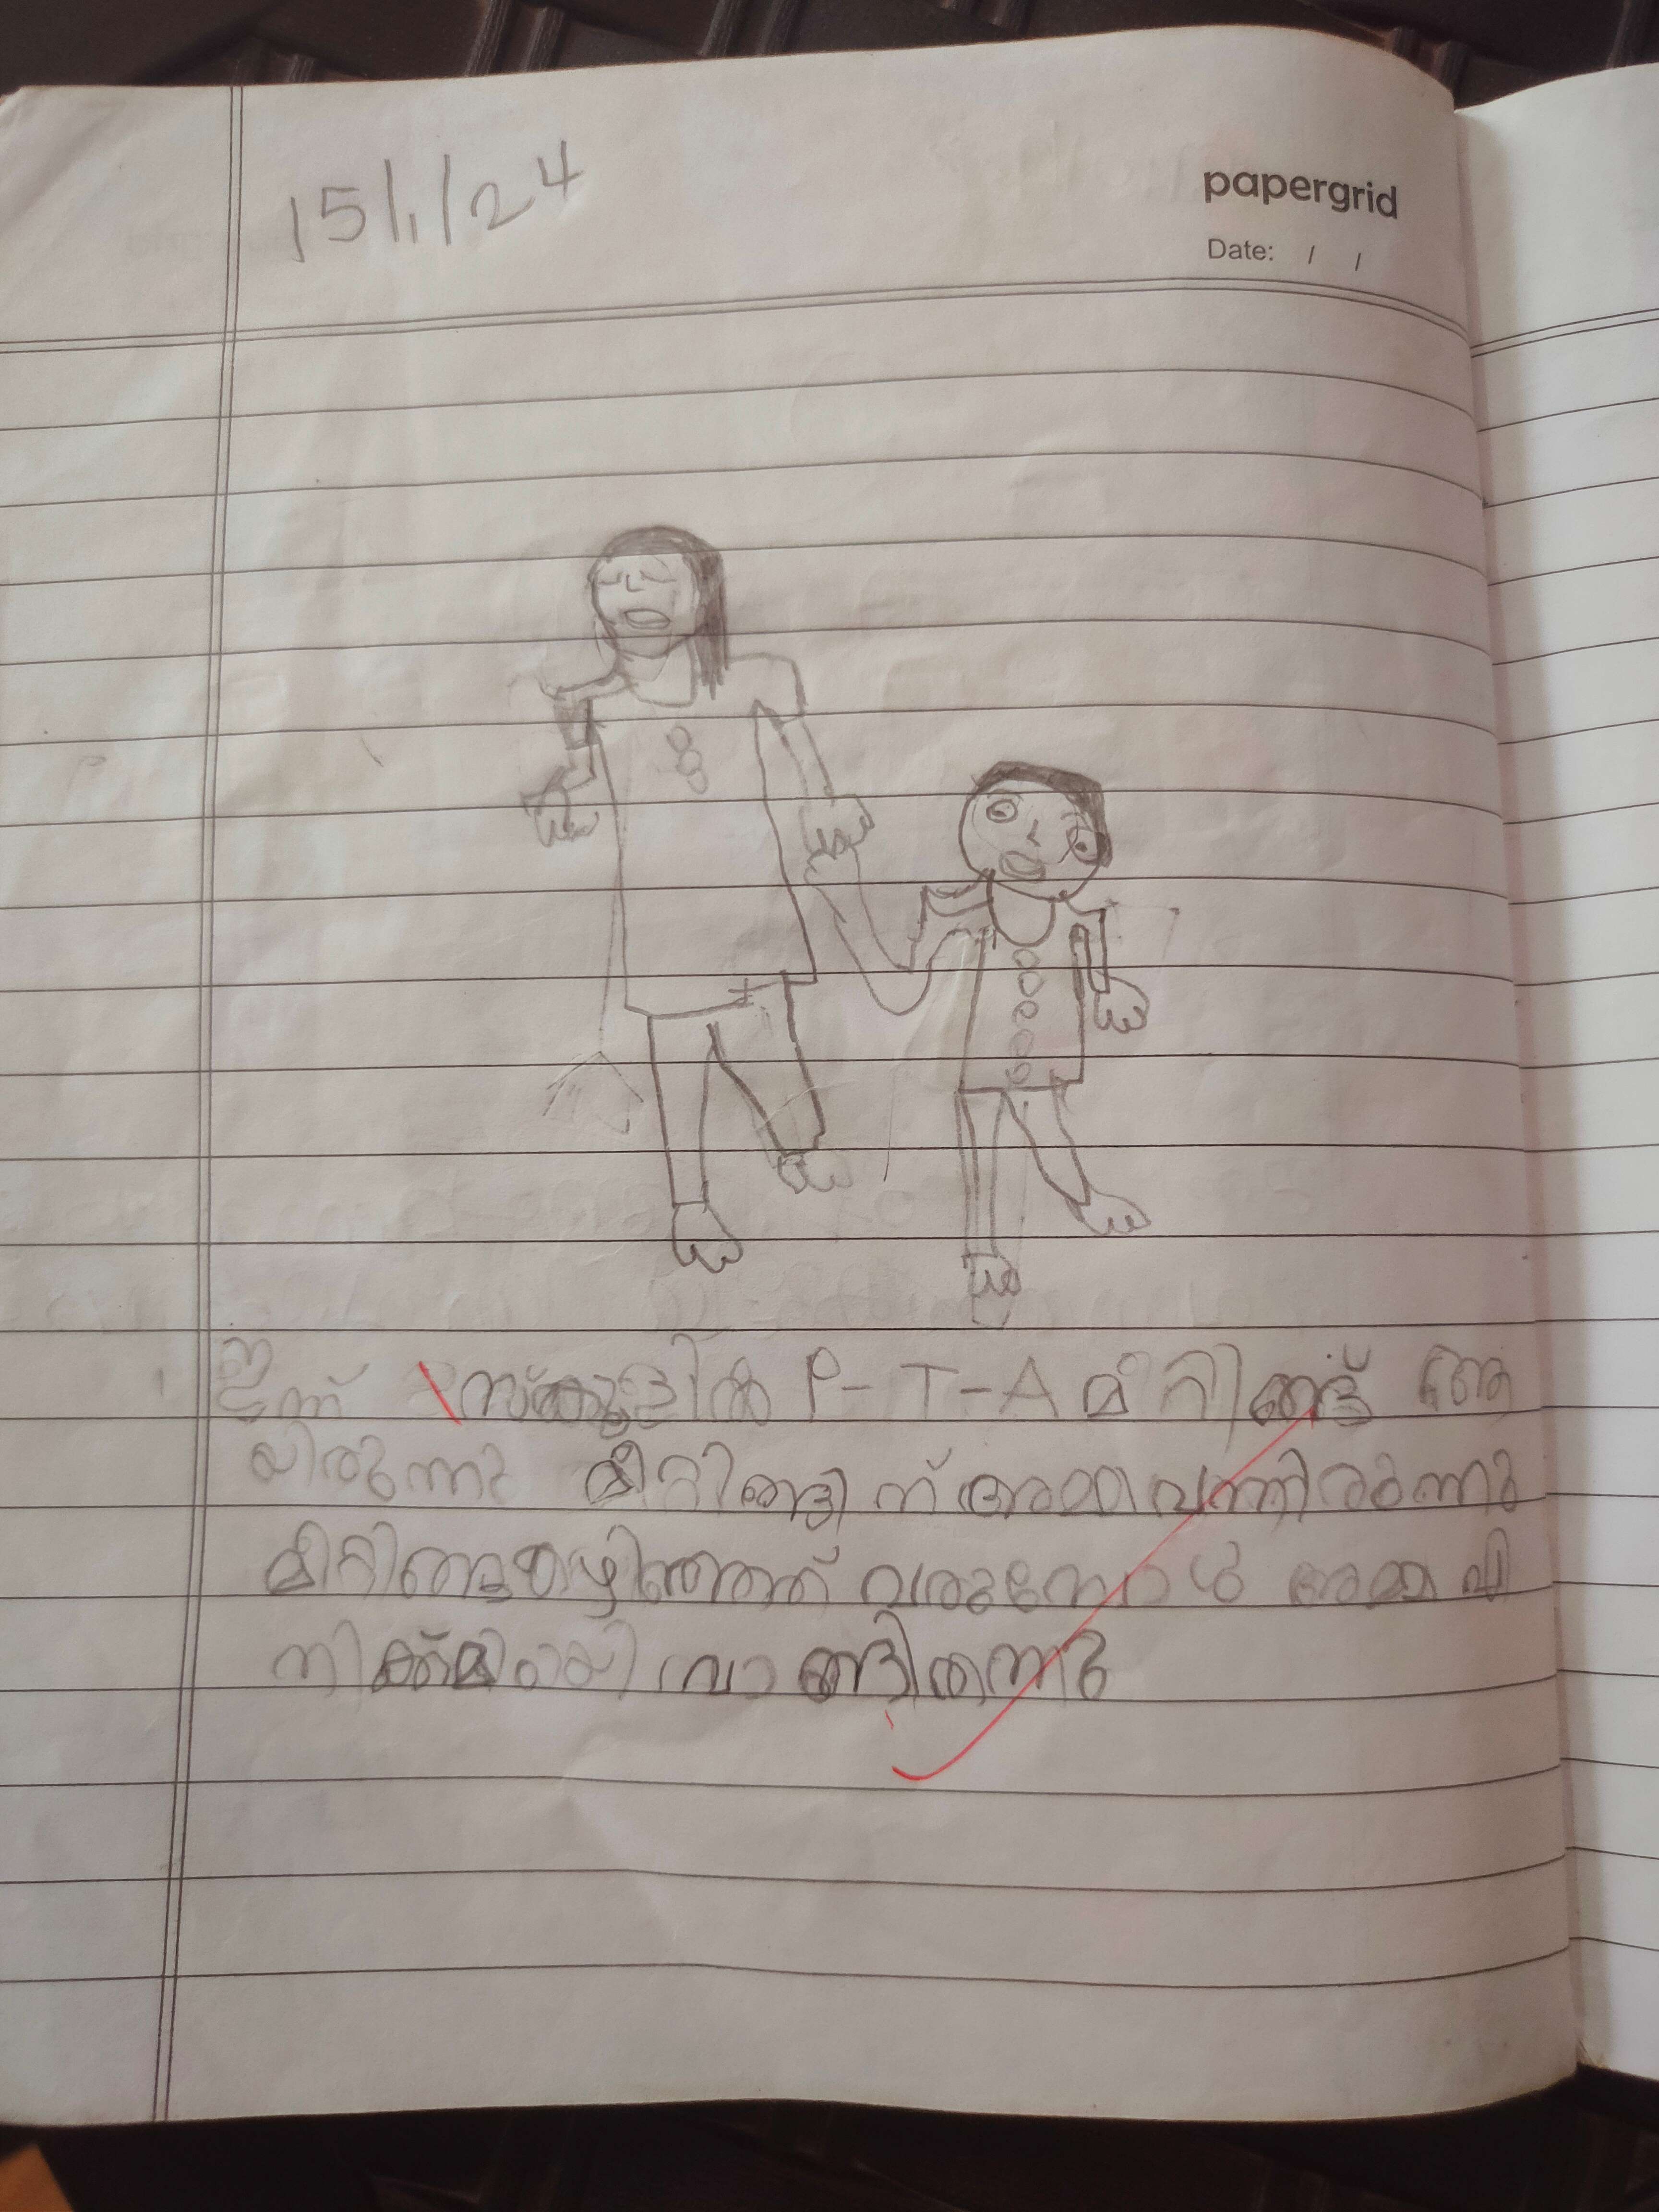 15/1/24
papergrid
Date: / /
ഇന്ന് സ്കൂളിൽ P-T-A മീറ്റിങ്ങ് ആ
യിരുന്നു മീറ്റിങ്ങിന് അമ്മ വന്നിരുന്നു
മീറ്റിങ്ങുകഴിഞ്ഞത് വരുമ്പോൾ അമ്മ എ
നിക്ക് മിഠായി വാങ്ങിതന്നു